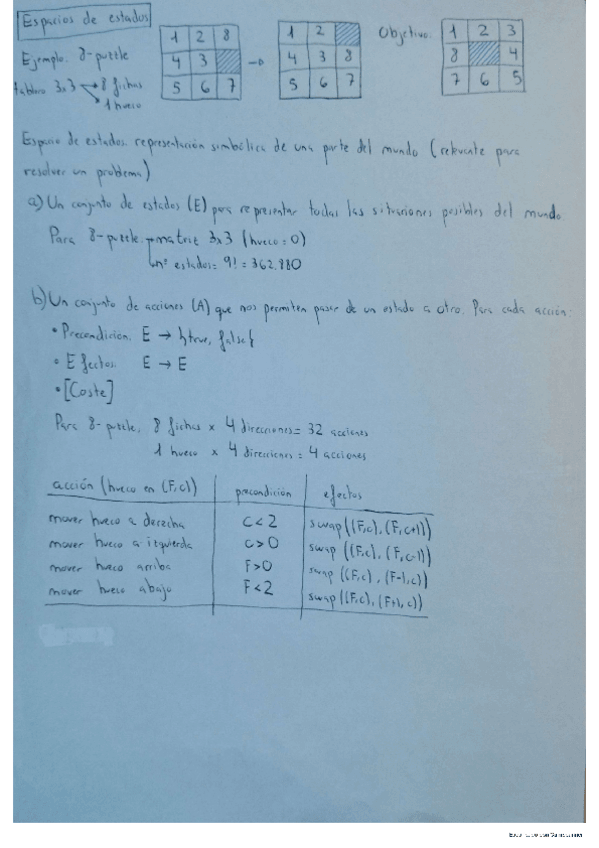 Espacios de estados
Ejemplo: 8-puzzle
tablero 3x3 → 8 fichas
→ 1 hueco
1 2 8
4 3
5 6 7
→
1 2
4 3 8
5 6 7
Objetivo:
1 2 3
8 4
7 6 5
Espacio de estados: representación simbólica de una parte del mundo (relevante para
resolver un problema)
a) Un conjunto de estados (E) para representar todas las situaciones posibles del mundo.
Para 8-puzzle: → matriz 3x3 (hueco=0)
→ nº estados = 9! = 362.880
b) Un conjunto de acciones (A) que nos permiten pasar de un estado a otro. Para cada acción:
• Precondición: E → {true, false}
• Efectos: E → E
• [Coste]
Para 8-puzzle, 8 fichas x 4 direcciones = 32 acciones
1 hueco x 4 direcciones = 4 acciones
acción (hueco en (F,c)) | precondición | efectos
mover hueco a derecha | c<2 | swap((F,c), (F,c+1))
mover hueco a izquierda | c>0 | swap((F,c), (F,c-1))
mover hueco arriba | F>0 | swap((F,c), (F-1,c))
mover hueco abajo | F<2 | swap((F,c), (F+1,c))